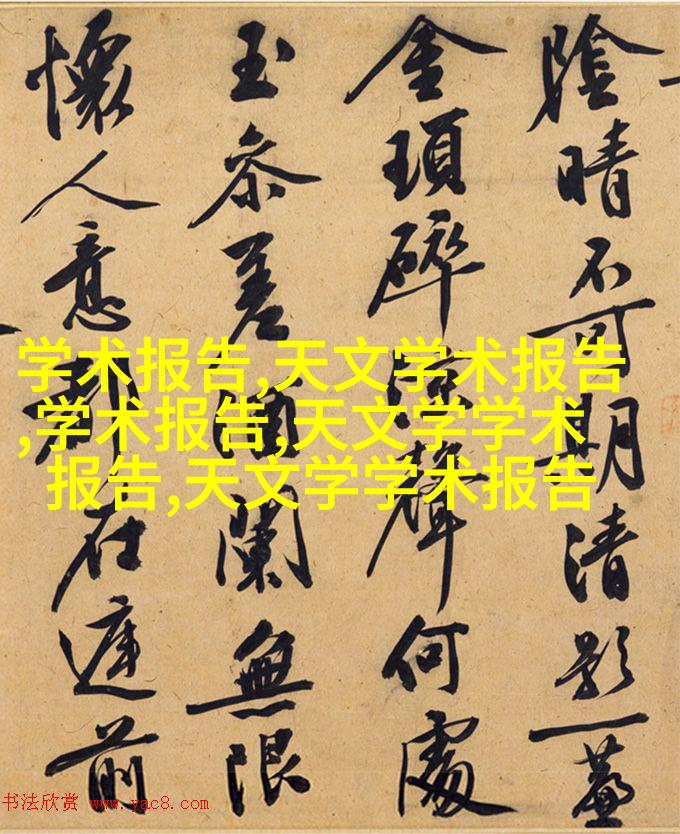 陰晴不可期清影一簾
金瑣碎涼聲何處
玉參差酒闌無限
懷人意都在庭前
学术报告,天文学术报告
,学术报告,天文学学术
报告,天文学学术报告
书法欣赏 www.yac8.com